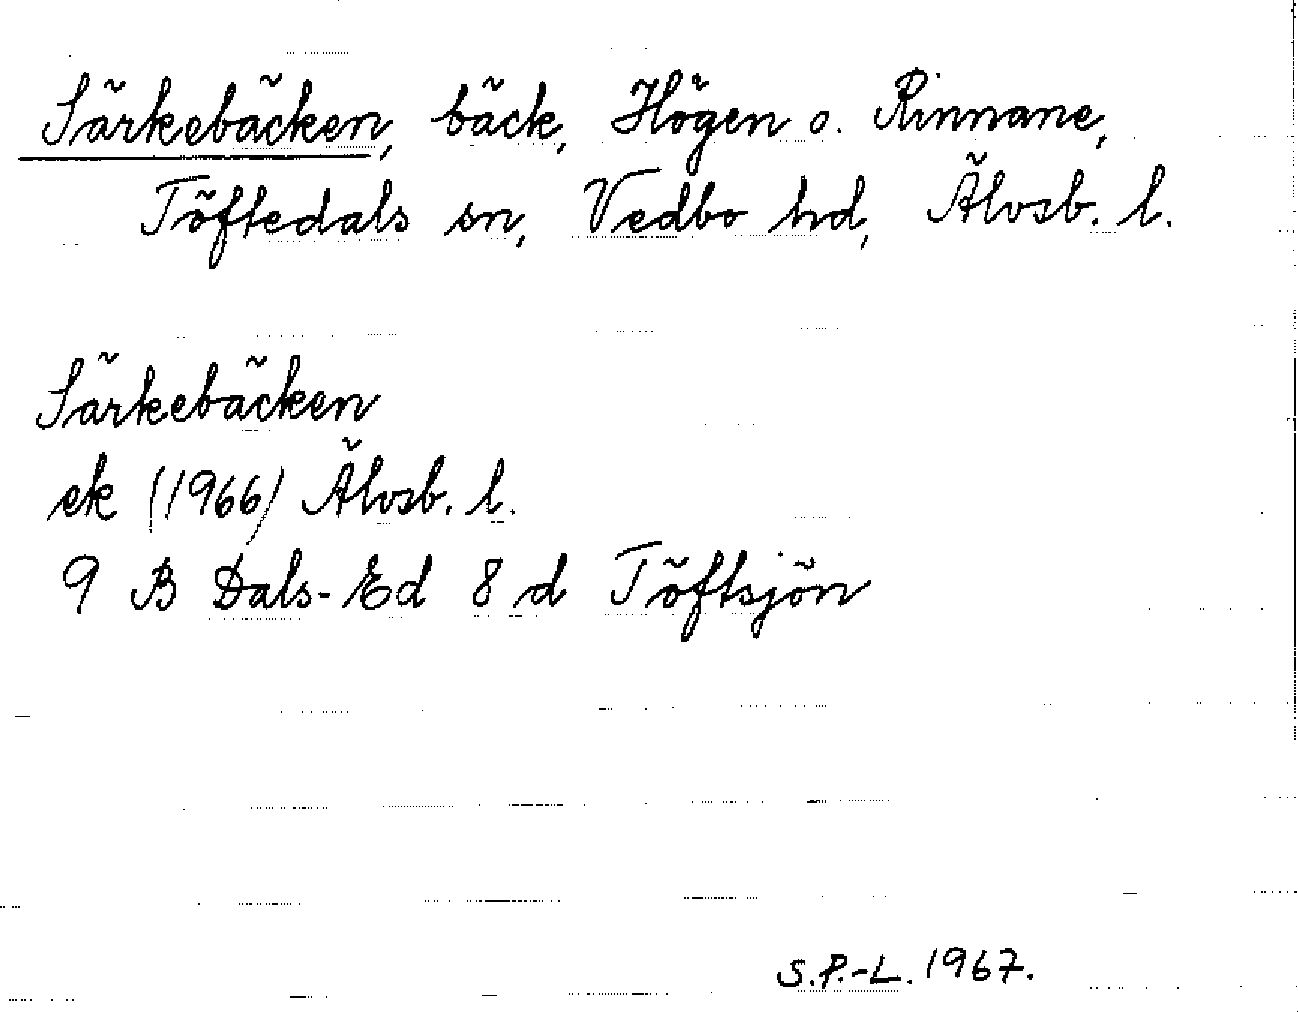 Särkebäcken, bäck, Högen o. Rinnane,
Töftedals sn, Vedbo hd, Älvsb. l.
Särkebäcken
ek (1966) Älvsb. l.
9 B Dals-Ed 8 d Töftsjön
S.P.-L. 1967.